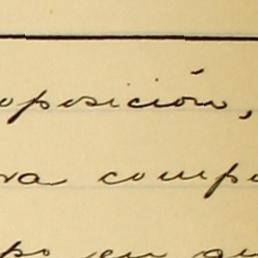 oposición,
va comp
po en qu